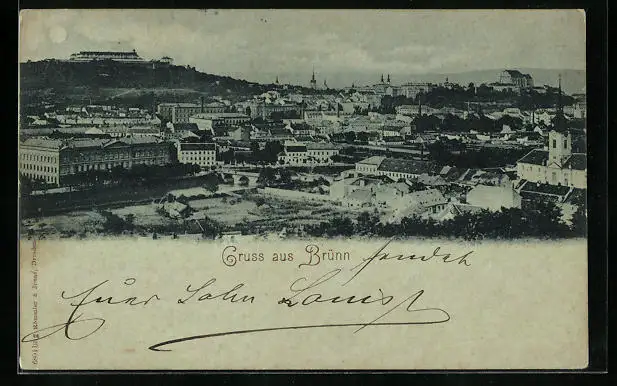 Gruss aus Brünn sendet
Euer Sohn Louis
Römmler & Jonas, Dresden